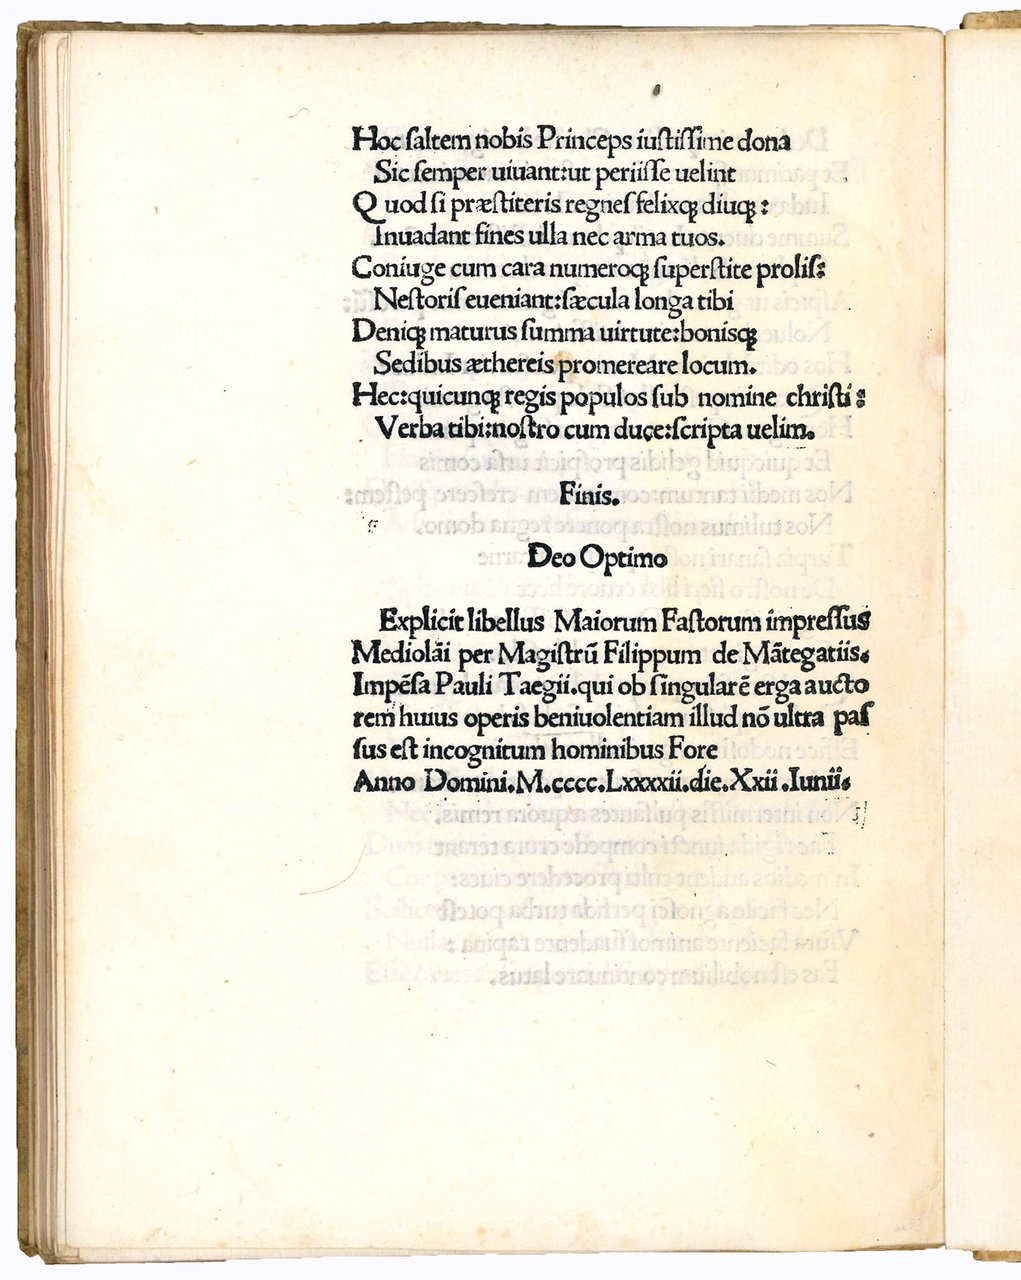 Hoc ſaltem nobis Princeps iuſtiſſime dona
Sic ſemper uiuant:ut periiſſe uelint
Quod ſi præſtiteris regneſ felixqꝫ diuqꝫ:
Inuadant fines ulla nec arma tuos.
Coniuge cum cara numeroqꝫ ſuperſtite proliſ:
Neſtoriſ eueniant:ſæcula longa tibi
Deniqꝫ maturus ſumma uirtute:boniſqꝫ
Sedibus æthereis promereare locum.
Hec:quicunqꝫ regis populos ſub nomine chriſti:
Verba tibi:noſtro cum duce:ſcripta uelim.
Finis.
Deo Optimo
Explicit libellus Maiorum Faſtorum impreſſus
Mediolāi per Magiſtrū Filippum de Mātegatiis.
Impēſa Pauli Taegii.qui ob ſingularē erga aucto
rem huius operis beniuolentiam illud nō ultra paſ
ſus eſt incognitum hominibus Fore
Anno Domini.M.cccc.Lxxxxii.die.Xxii.Iunii.